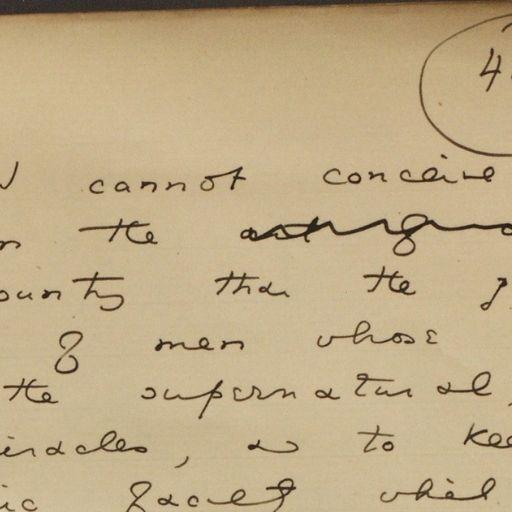 4
I cannot conceive
the
ounty than the
of men whose
the supernatural,
iracles, as to kee
ic facult which